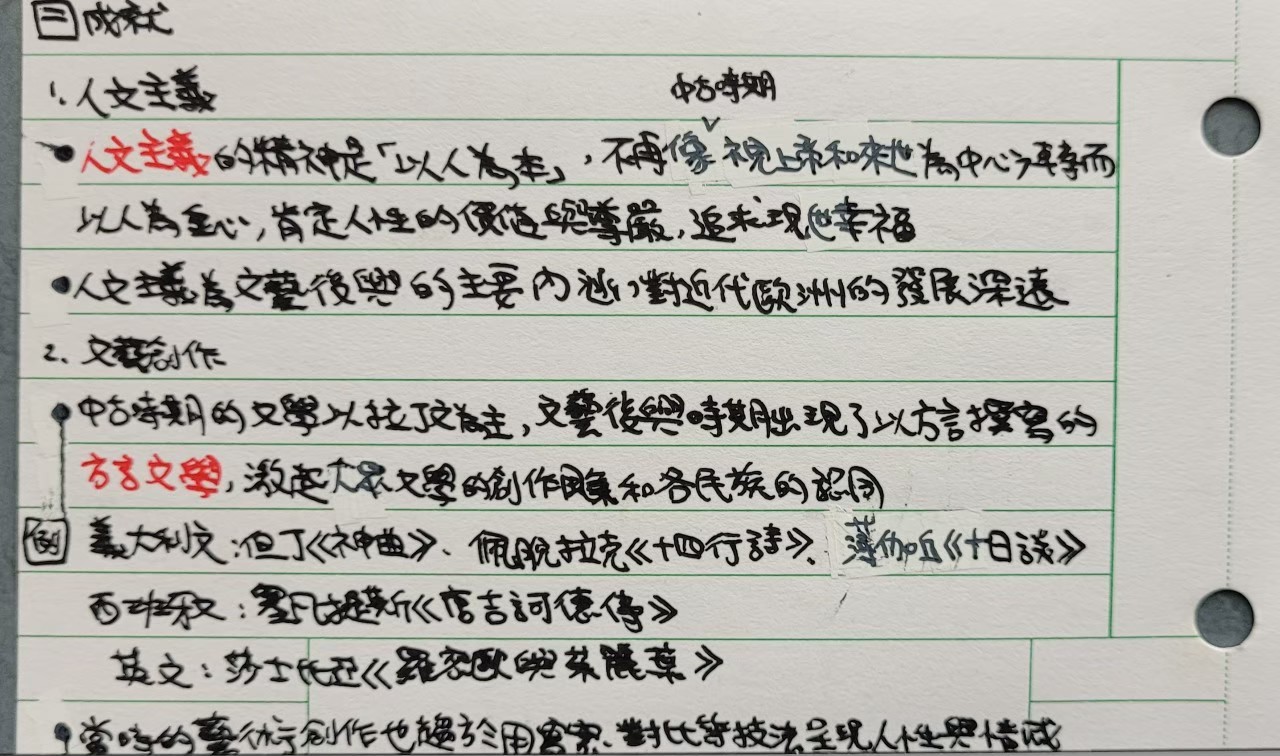 三 成就
1. 人文主義
中古時期
• 人文主義的精神是「以人為本」,不再像視上帝和來世為中心,而
以人為重心,肯定人性的價值與尊嚴,追求現世幸福
• 人文主義為文藝復興的主要內涵,對近代歐洲的發展深遠
2. 文藝創作
• 中古時期的文學以拉丁文為主,文藝復興時期出現了以方言撰寫的
方言文學,激起大眾文學的創作風氣和各民族的認同
例 義大利文:但丁《神曲》、佩脫拉克《十四行詩》、薄伽丘《十日談》
西班牙文:塞凡提斯《唐吉訶德傳》
英文:莎士比亞《羅密歐與茱麗葉》
• 當時的藝術創作也趨於用寫實、對比等技法呈現人性與情感